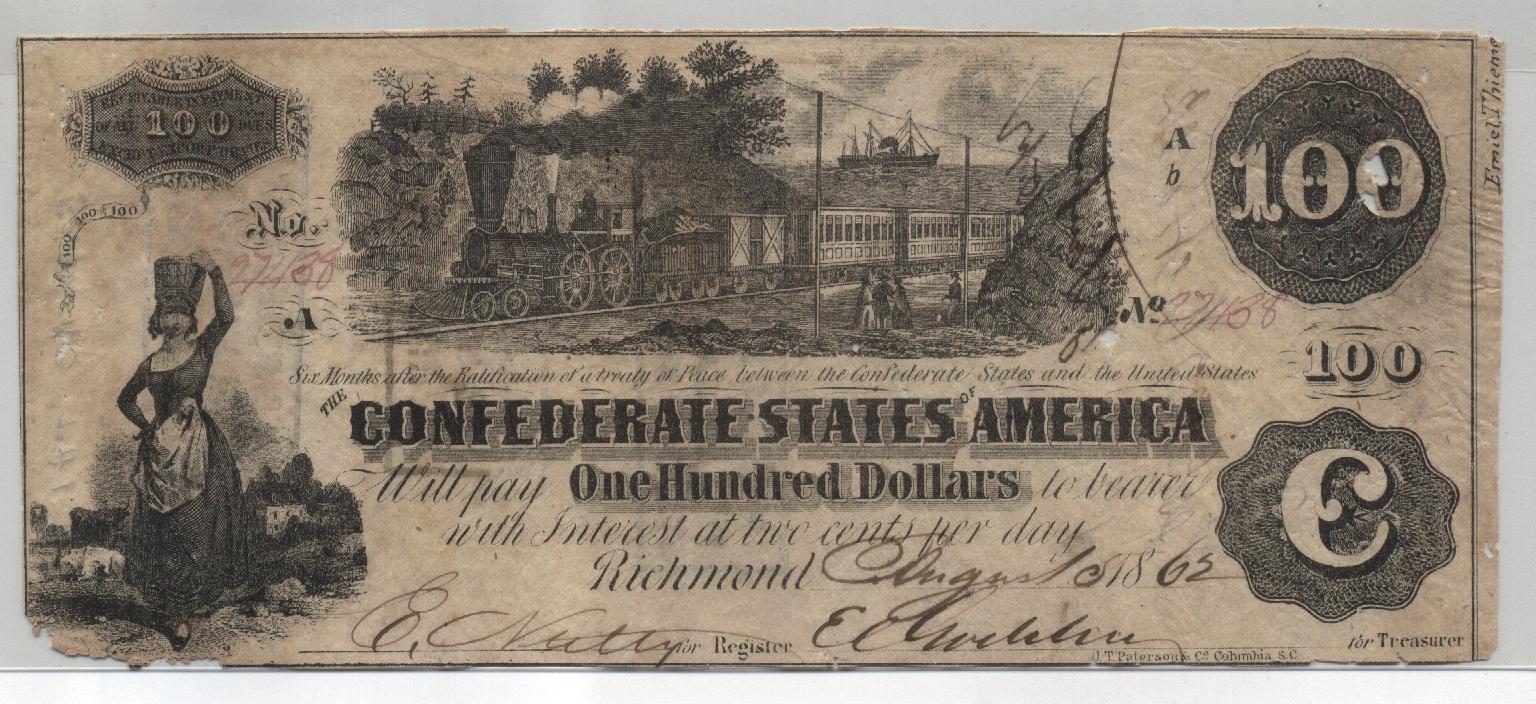 RECEIVABLE IN PAYMENT
OF ALL 100 DUES
EXCEPT EXPORT DUTIES
100 100
100
No.
27468
A
A
b
No 27468
100
100
C
Emiel Thieme
Six Months after the Ratification of a treaty of Peace between the Confederate States and the United States
THE CONFEDERATE STATES OF AMERICA
Will pay One Hundred Dollars to bearer
with Interest at two cents per day
Richmond August 1862
E. Nutty for Register
for Treasurer
J. T. Paterson & Co Columbia S.C.